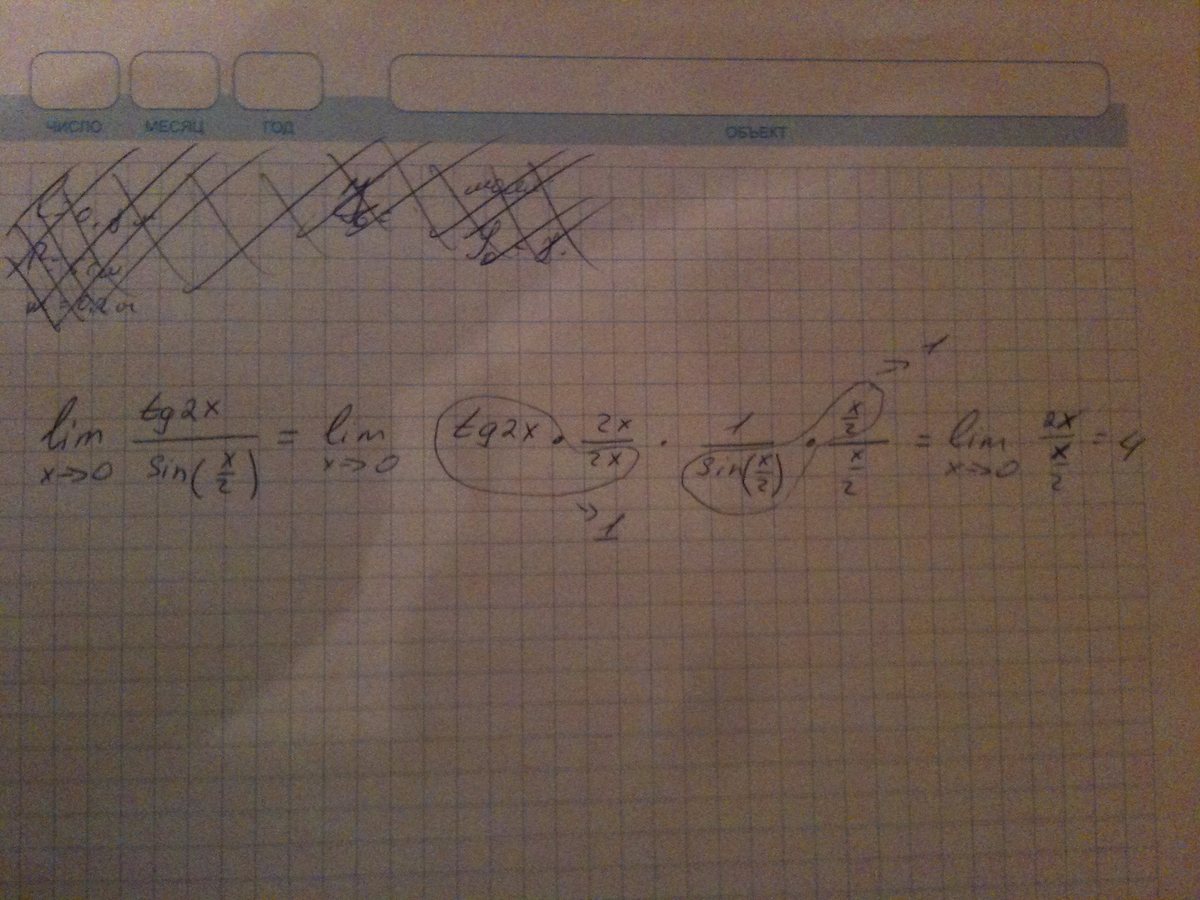 ЧИСЛО МЕСЯЦ ГОД ОБЪЕКТ
lim x→0 tg2x / sin(x/2) = lim x→0 tg2x · 2x/2x · 1/sin(x/2) · (x/2)/(x/2) = lim x→0 2x/(x/2) = 4
→ 1
→ 1